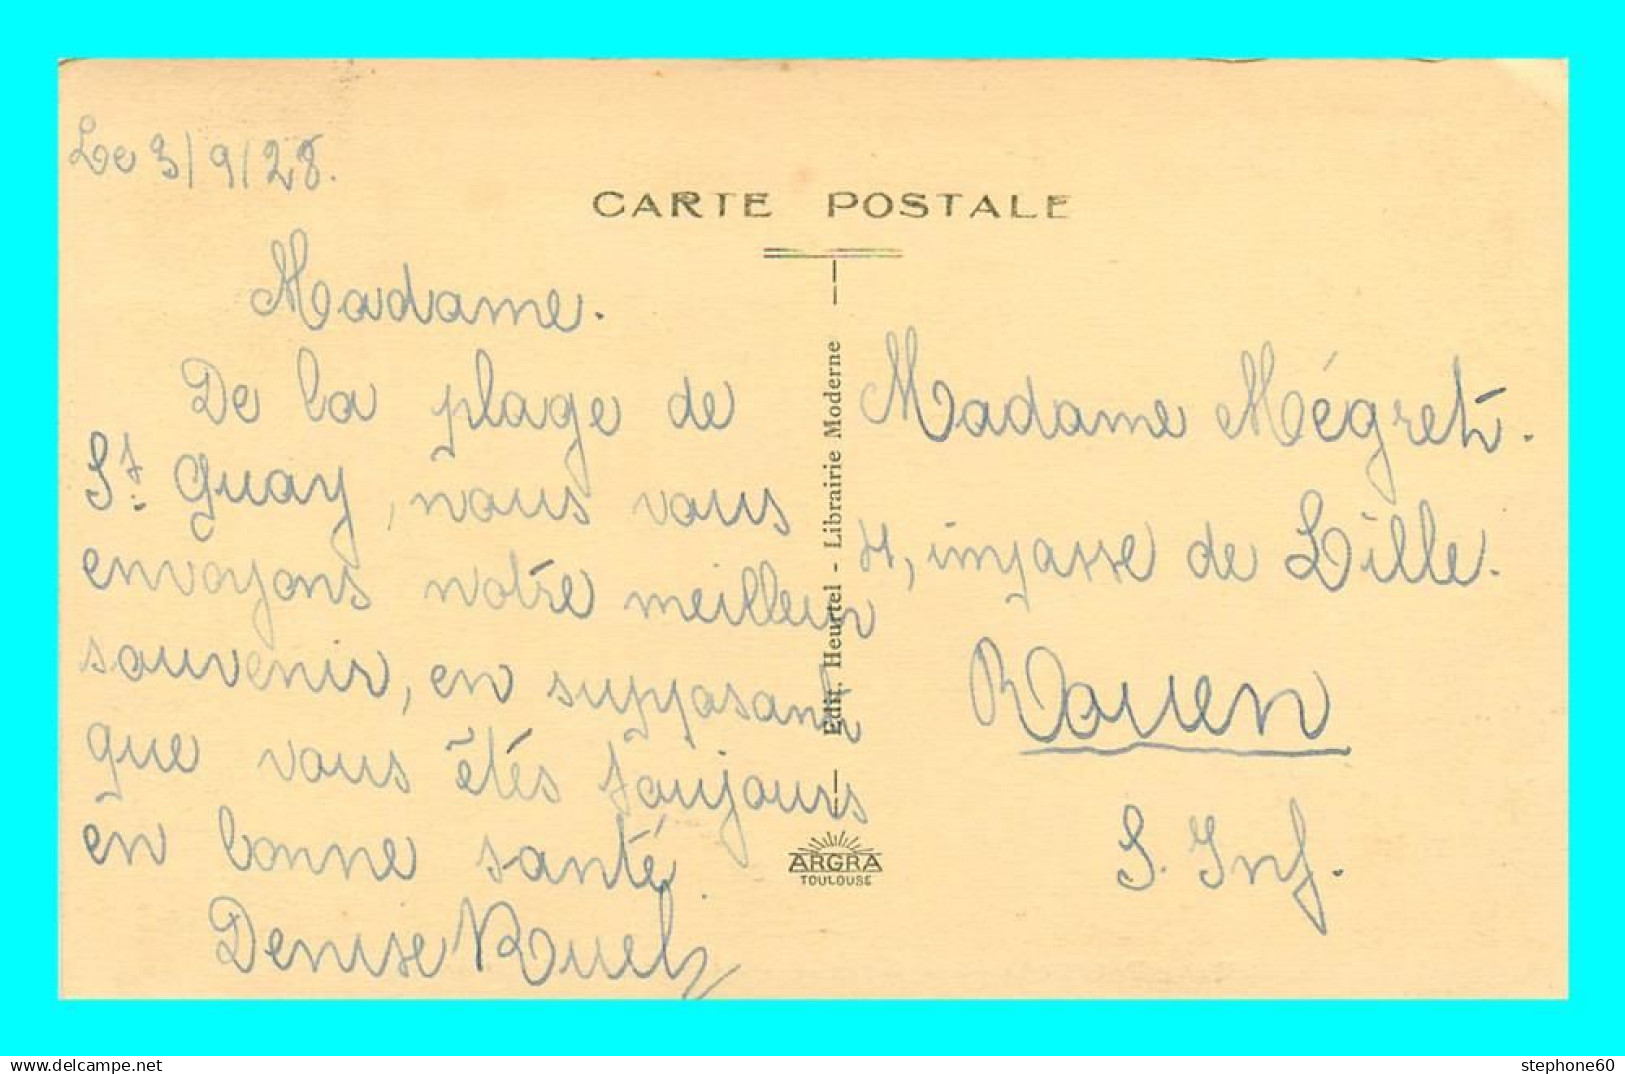 Le 3/9/28.
CARTE POSTALE
Madame.
De la plage de
St. Quay, nous vous
envoyons notre meilleur
souvenir, en supposant
que vous êtés toujours
en bonne santé.
Denise Ruel
Edit. Heurtel - Librairie Moderne
ARGRA
TOULOUSE
Madame Mégret.
impasse de Lille.
Rouen
S. Inf.
www.delcampe.net
stephone60